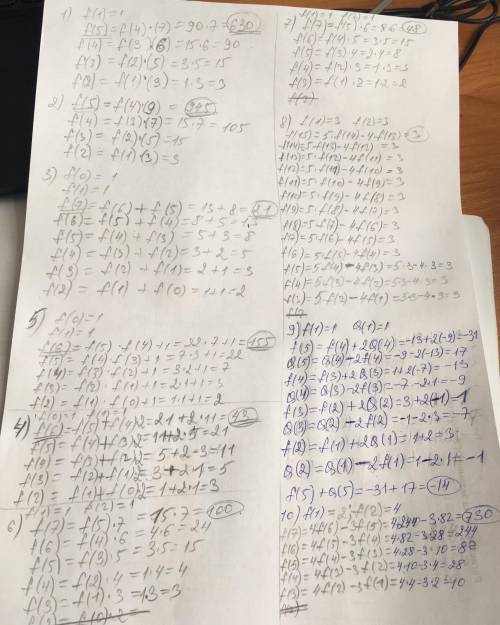 1) f(1)=1
f(5)=f(4)·(7)=90·7=630
f(4)=f(3)·(6)=15·6=90
f(3)=f(2)·(5)=3·5=15
f(2)=f(1)·(3)=1·3=3
2) f(5)=f(4)(9)=945
f(4)=f(3)·(7)=15·7=105
f(3)=f(2)·(5)=15
f(2)=f(1)·(3)=3
3) f(0)=1
f(1)=1
f(7)=f(6)+f(5)=13+8=21
f(6)=f(5)+f(4)=5+5=13
f(5)=f(4)+f(3)=5+3=8
f(4)=f(3)+f(2)=3+2=5
f(3)=f(2)+f(1)=2+1=3
f(2)=f(1)+f(0)=1+1=2
5) f(0)=1
f(1)=1
f(6)=f(5)·f(4)+1=22·7+1=155
f(5)=f(4)·f(3)+1=7·3+1=22
f(4)=f(3)·f(2)+1=3·2+1=7
f(3)=f(2)·f(1)+1=2·1+1=3
f(2)=f(1)·f(0)+1=1·1+1=2
4) f(0)=1 f(1)=1
f(6)=f(5)+f(4)2=21+2·11=43
f(5)=f(4)+f(3)2=11+2·5=21
f(4)=f(3)+f(2)2=5+2·3=11
f(3)=f(2)+f(1)2=3+2·1=5
f(2)=f(1)+f(0)2=1+2·1=3
6) f(1)=1 f(2)=1
f(7)=f(5)·7=15·7=100
f(6)=f(4)·6=4·6=24
f(5)=f(3)·5=3·5=15
f(4)=f(2)·4=1·4=4
f(3)=f(1)·3=1·3=3
f(2)=f(0)·2=
f(1)=1 f(2)=1
7) f(7)=f(5)·6=8·6=48
f(6)=f(4)·5=3·5=15
f(5)=f(3)·4=2·4=8
f(4)=f(2)·3=1·3=3
f(3)=f(1)·2=1·2=2
f(2)
8) f(1)=3 f(2)=3
f(15)=5·f(14)-4f(13)=3
f(14)=5·f(13)-4f(12)=3
f(13)=5·f(12)-4f(11)=3
f(12)=5·f(11)-4f(10)=3
f(11)=5·f(10)-4f(9)=3
f(10)=5·f(9)-4f(8)=3
f(9)=5·f(8)-4f(7)=3
f(8)=5·f(7)-4f(6)=3
f(7)=5·f(6)-4f(5)=3
f(6)=5·f(5)-4f(4)=3
f(5)=5·f(4)-4f(3)=5·3-4·3=3
f(4)=5f(3)-4f(2)=5·3-4·3=3
f(3)=5·f(2)-4f(1)=5·3-4·3=3
9) f(1)=1 Q(1)=1
f(5)=f(4)+2Q(4)=-13+2(-9)=-31
Q(5)=Q(4)-2f(4)=-9-2(-13)=17
f(4)=f(3)+2Q(3)=1+2(-7)=-13
Q(4)=Q(3)-2f(3)=-7-2·1=-9
f(3)=f(2)+2Q(2)=3+2(-1)=1
Q(3)=Q(2)-2f(2)=-1-2·3=-7
f(2)=f(1)+2Q(1)=1+2=3
Q(2)=Q(1)-2f(1)=1-2·1=-1
f(5)+Q(5)=-31+17=-14
10) f(1)=2 f(2)=4
f(7)=4f(6)-3f(5)=4·244-3·82=730
f(6)=4f(5)-3f(4)=4·82-3·28=244
f(5)=4f(4)-3f(3)=4·28-3·10=82
f(4)=4f(3)-3f(2)=4·10-3·4=28
f(3)=4f(2)-3f(1)=4·4-3·2=10